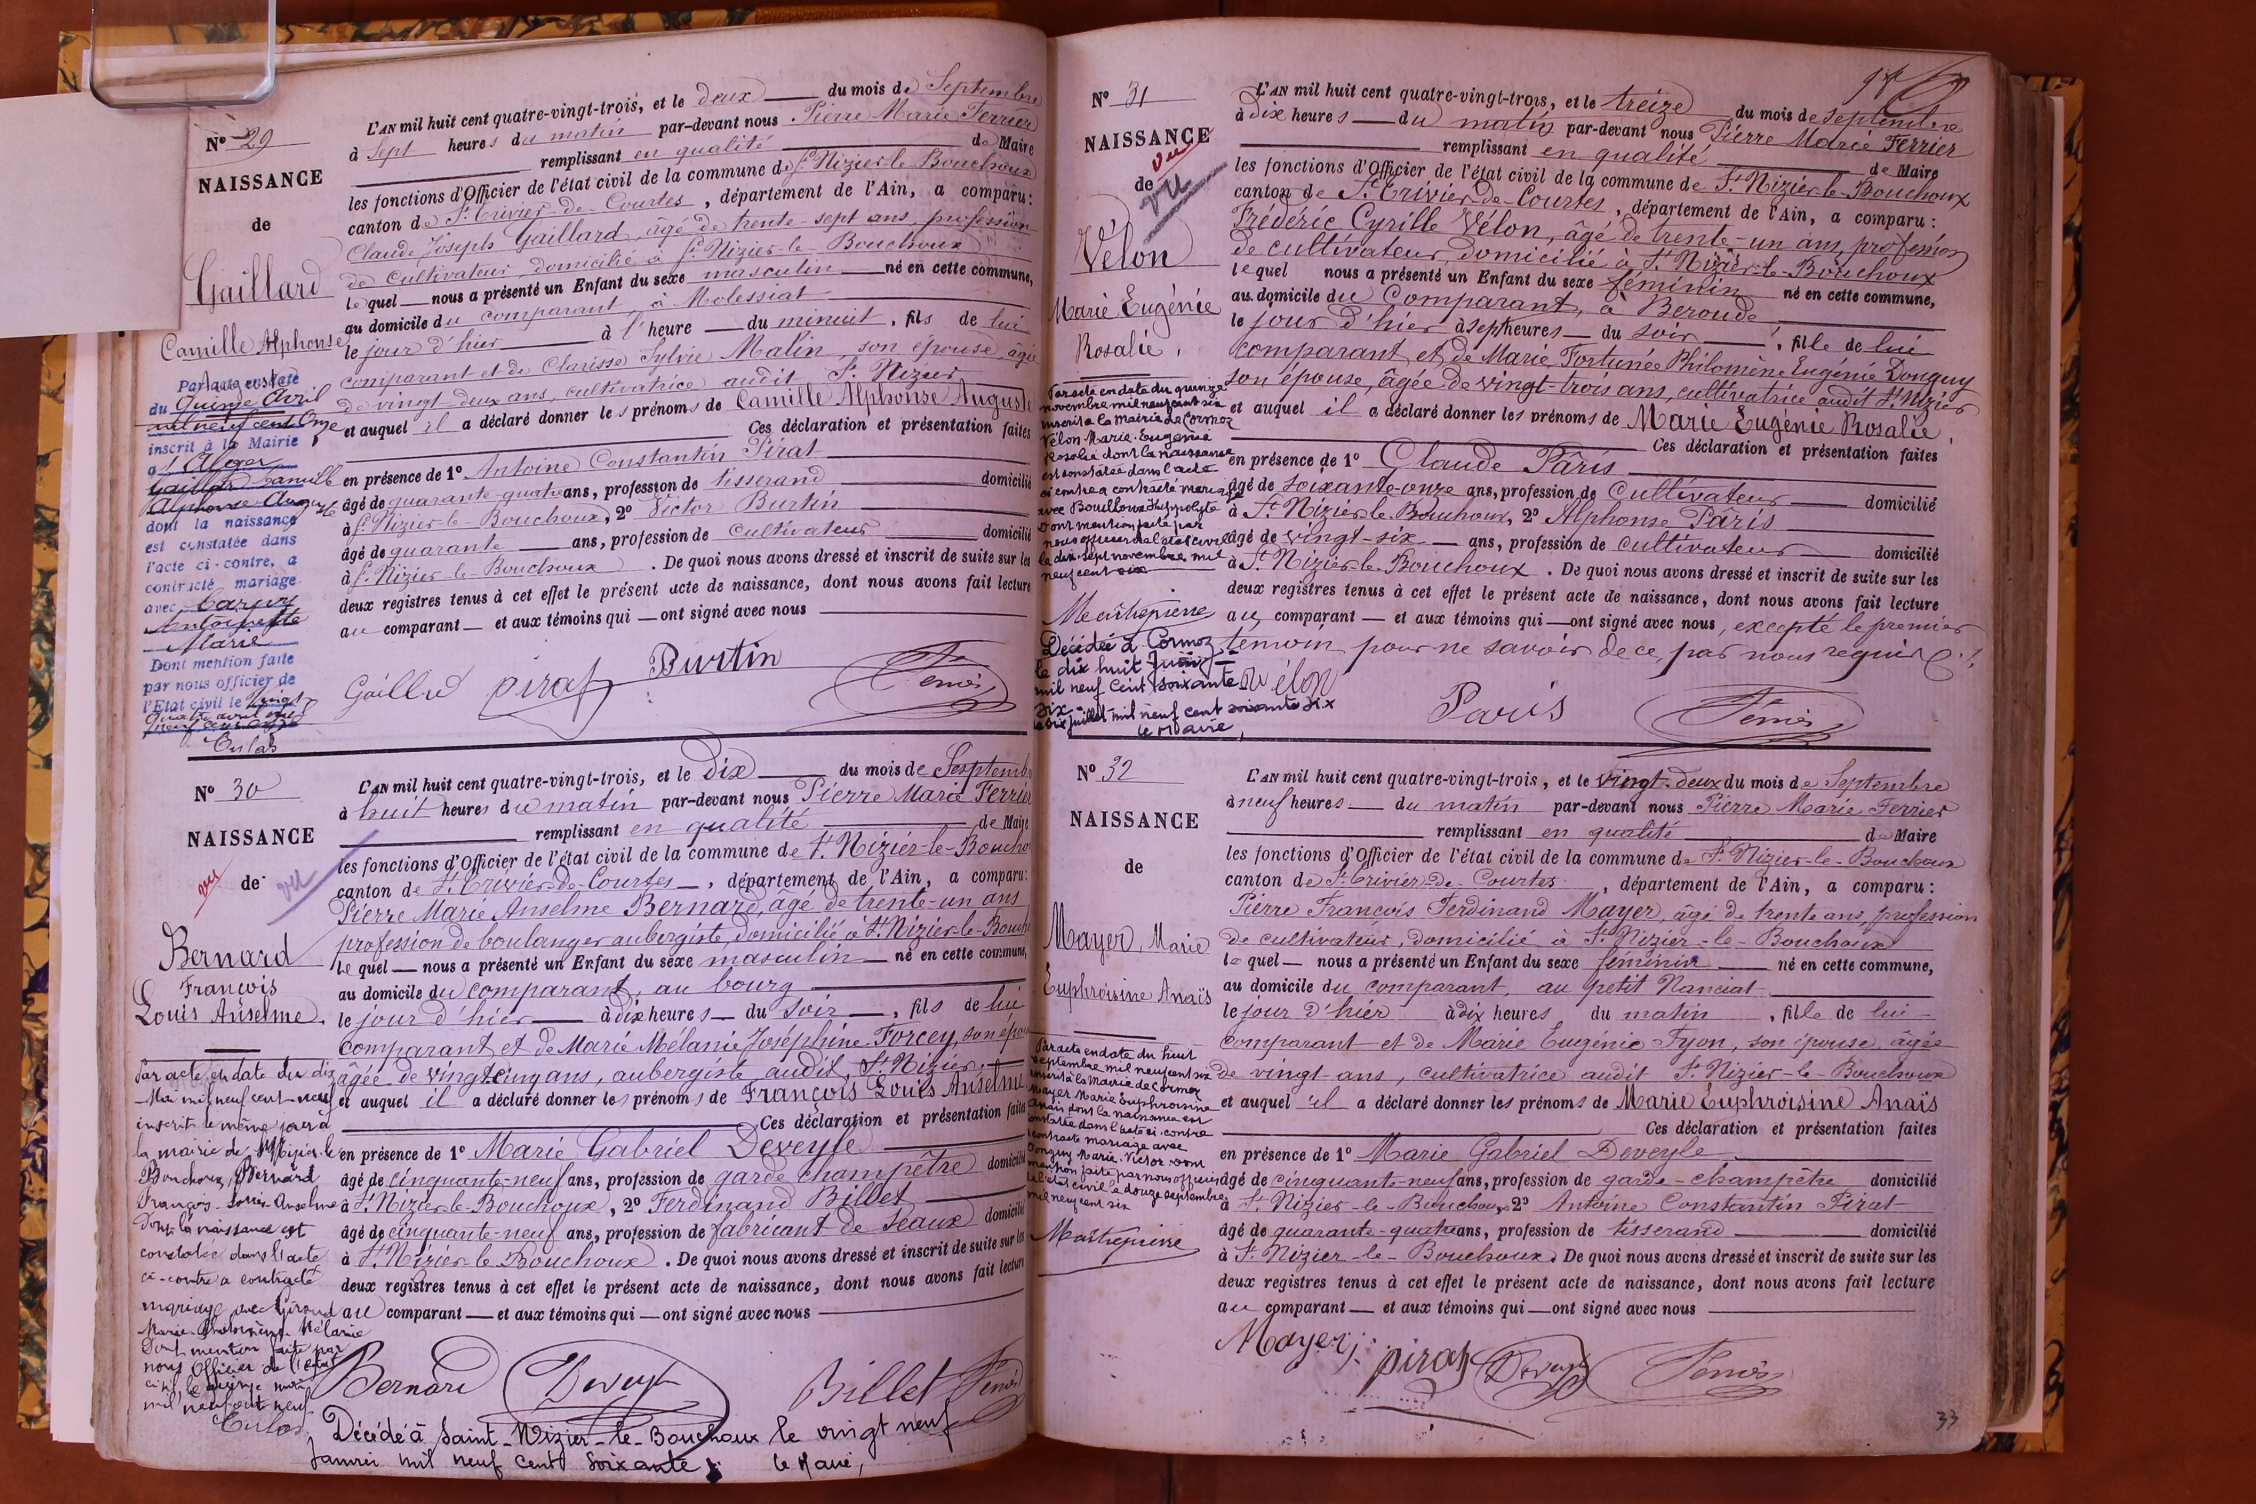 N° 29
NAISSANCE
de
Gaillard
Camille Alphonse
Auguste
Par acte en date
du Quinze Avril
mil neuf cent Onze
inscrit à la Mairie
d'Alger
Gaillard Camille
Alphonse Auguste
dont la naissance
est constatée dans
l'acte ci-contre, a
contracté mariage
avec
Antoinette
Marie
Dont mention faite
par nous officier de
l'Etat civil le vingt
quatre avril mil
neuf cent onze
L'AN mil huit cent quatre-vingt-trois, et le deux du mois de Septembre
à sept heures du matin par-devant nous Pierre Marie Ferrier
remplissant en qualité de Maire
les fonctions d'Officier de l'état civil de la commune de St Nizier-le-Bouchoux
canton de St Trivier-de-Courtes, département de l'Ain, a comparu:
Claude Joseph Gaillard, âgé de trente-sept ans, profession
de cultivateur, domicilié à St Nizier-le-Bouchoux
lequel nous a présenté un Enfant du sexe masculin né en cette commune,
au domicile du comparant, à Molessiat
le jour d'hier à l'heure du minuit, fils de lui
comparant et de Clarisse Sylvie Malin, son épouse, âgée
de vingt deux ans, cultivatrice audit St Nizier
et auquel il a déclaré donner les prénoms de Camille Alphonse Auguste
Ces déclaration et présentation faites
en présence de 1° Antoine Constantin Pirat
âgé de quarante-quatre ans, profession de tisserand domicilié
à St Nizier-le-Bouchoux, 2° Victor Burtin
âgé de quarante ans, profession de cultivateur domicilié
à St Nizier-le-Bouchoux. De quoi nous avons dressé et inscrit de suite sur les
deux registres tenus à cet effet le présent acte de naissance, dont nous avons fait lecture
au comparant et aux témoins qui ont signé avec nous
Gaillard pirat Burtin
N° 30
NAISSANCE
de
vu
vu
Bernard
François
Louis Anselme.
Par acte en date du dix
Mai mil neuf cent neuf
inscrit le même jour à
la mairie de St Nizier-le
Bouchoux, Bernard
François-Louis-Anselme
dont la naissance est
constatée dans l'acte
ci-contre a contracté
mariage avec Giroud
Marie Mélanie
Dont mention faite par
nous Officier de l'état
civil, le mai
mil neuf cent neuf
L'AN mil huit cent quatre-vingt-trois, et le dix du mois de Septembre
à huit heures du matin par-devant nous Pierre Marie Ferrier
remplissant en qualité de Maire
les fonctions d'Officier de l'état civil de la commune de St Nizier-le-Boucho
canton de St Trivier-de-Courtes, département de l'Ain, a comparu:
Pierre Marie Anselme Bernard, âgé de trente-un ans
profession de boulanger aubergiste, domicilié à St Nizier-le-Bouch
lequel nous a présenté un Enfant du sexe masculin né en cette commune,
au domicile du comparant, au bourg
le jour d'hier à dix heures du soir, fils de lui
comparant et de Marie Mélanie Joséphine Forcey, son épou
âgée de vingt cinq ans, aubergiste audit St Nizier
et auquel il a déclaré donner les prénoms de François Louis Anselme
Ces déclaration et présentation faites
en présence de 1° Marie Gabriel Deveyle
âgé de cinquante-neuf ans, profession de garde champêtre domicilié
à St Nizier-le-Bouchoux, 2° Ferdinand Billet
âgé de cinquante-neuf ans, profession de fabricant de seaux domicilié
à St Nizier-le-Bouchoux. De quoi nous avons dressé et inscrit de suite sur les
deux registres tenus à cet effet le présent acte de naissance, dont nous avons fait lecture
au comparant et aux témoins qui ont signé avec nous
Bernard Deveyle Billet
Décédé à Saint-Nizier-le-Bouchoux le vingt neuf
Janvier mil neuf cent soixante. le Maire,
N° 31
NAISSANCE
de
vu
vu
Vélon
Marie Eugénie
Rosalie.
Par acte en date du quinze
novembre mil neuf cent six
inscrit à la Mairie de Cormoz
Vélon Marie Eugénie
Rosalie dont la naissance
est constatée dans l'acte
ci contre a contracté mariage
avec Bouilloux Hyppolyte
Dont mention faite par
nous officier de l'état civil
le dix-sept novembre mil
neuf cent six
Décédée à Cormoz
le dix huit Juin
mil neuf cent soixante
six
le six juillet mil neuf cent soixante six
le Maire,
L'AN mil huit cent quatre-vingt-trois, et le treize du mois de septembre
à dix heures du matin par-devant nous Pierre Marie Ferrier
remplissant en qualité de Maire
les fonctions d'Officier de l'état civil de la commune de St Nizier-le-Bouchoux
canton de St Trivier-de-Courtes, département de l'Ain, a comparu:
Frédéric Cyrille Vélon, âgé de trente-un ans, profession
de cultivateur, domicilié à St Nizier-le-Bouchoux
lequel nous a présenté un Enfant du sexe féminin né en cette commune,
au domicile du Comparant, à Beroude
le jour d'hier à sept heures du soir, fille de lui
comparant et de Marie Fortunée Philomène Eugénie Donguy
son épouse, âgée de vingt-trois ans, cultivatrice audit St Nizier
et auquel il a déclaré donner les prénoms de Marie Eugénie Rosalie,
Ces déclaration et présentation faites
en présence de 1° Claude Pâris
âgé de soixante-onze ans, profession de Cultivateur domicilié
à St Nizier-le-Bouchoux, 2° Alphonse Pâris
âgé de vingt-six ans, profession de cultivateur domicilié
à St Nizier-le-Bouchoux. De quoi nous avons dressé et inscrit de suite sur les
deux registres tenus à cet effet le présent acte de naissance, dont nous avons fait lecture
au comparant et aux témoins qui ont signé avec nous, excepté le premier
témoin pour ne savoir de ce, par nous requis
Vélon Paris
N° 32
NAISSANCE
de
Mayer, Marie
Euphroisine Anaïs
Par acte en date du huit
septembre mil neuf cent six
inscrit à la Mairie de Cormoz
Mayer Marie Euphroisine
Anaïs dont la naissance est
constatée dans l'acte ci-contre
a contracté mariage avec
Donguy Marie Victor dont
mention faite par nous officier
de l'état civil le douze septembre
mil neuf cent six
L'AN mil huit cent quatre-vingt-trois, et le vingt-deux du mois de Septembre
à neuf heures du matin par-devant nous Pierre Marie Ferrier
remplissant en qualité de Maire
les fonctions d'Officier de l'état civil de la commune de St Nizier-le-Bouchoux
canton de St Trivier-de-Courtes, département de l'Ain, a comparu:
Pierre François Ferdinand Mayer, âgé de trente ans, profession
de cultivateur, domicilié à St Nizier-le-Bouchoux
lequel nous a présenté un Enfant du sexe féminin né en cette commune,
au domicile du comparant, au petit Nanciat
le jour d'hier à dix heures du matin, fille de lui
comparant et de Marie Eugénie Fyon, son épouse, âgée
de vingt ans, cultivatrice audit St Nizier-le-Bouchoux
et auquel il a déclaré donner les prénoms de Marie Euphroisine Anaïs
Ces déclaration et présentation faites
en présence de 1° Marie Gabriel Deveyle
âgé de cinquante-neuf ans, profession de garde-champêtre domicilié
à St Nizier-le-Bouchoux, 2° Antoine Constantin Pirat
âgé de quarante-quatre ans, profession de tisserand domicilié
à St Nizier-le-Bouchoux. De quoi nous avons dressé et inscrit de suite sur les
deux registres tenus à cet effet le présent acte de naissance, dont nous avons fait lecture
au comparant et aux témoins qui ont signé avec nous
Mayer pirat Deveyle
33